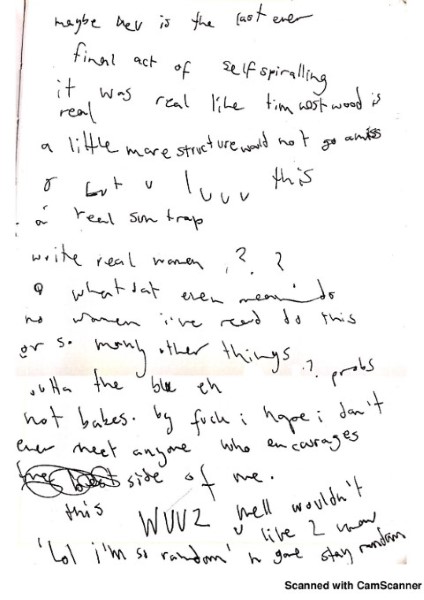 maybe her is the last ever
final act of self spiralling
it was real like tim westwood is
real
a little more structure would not go amiss
but u luvv this
a real sun trap
write real women ? ?
what dat even mean do
no women i've read do this
or so many other things ? probs
outta the blue eh
not babes. by fuck i hope i don't
ever meet anyone who encourages
side of me.
this
WUU2 well wouldn't
u like 2 know
'lol i'm so random' n gone stay random
Scanned with CamScanner